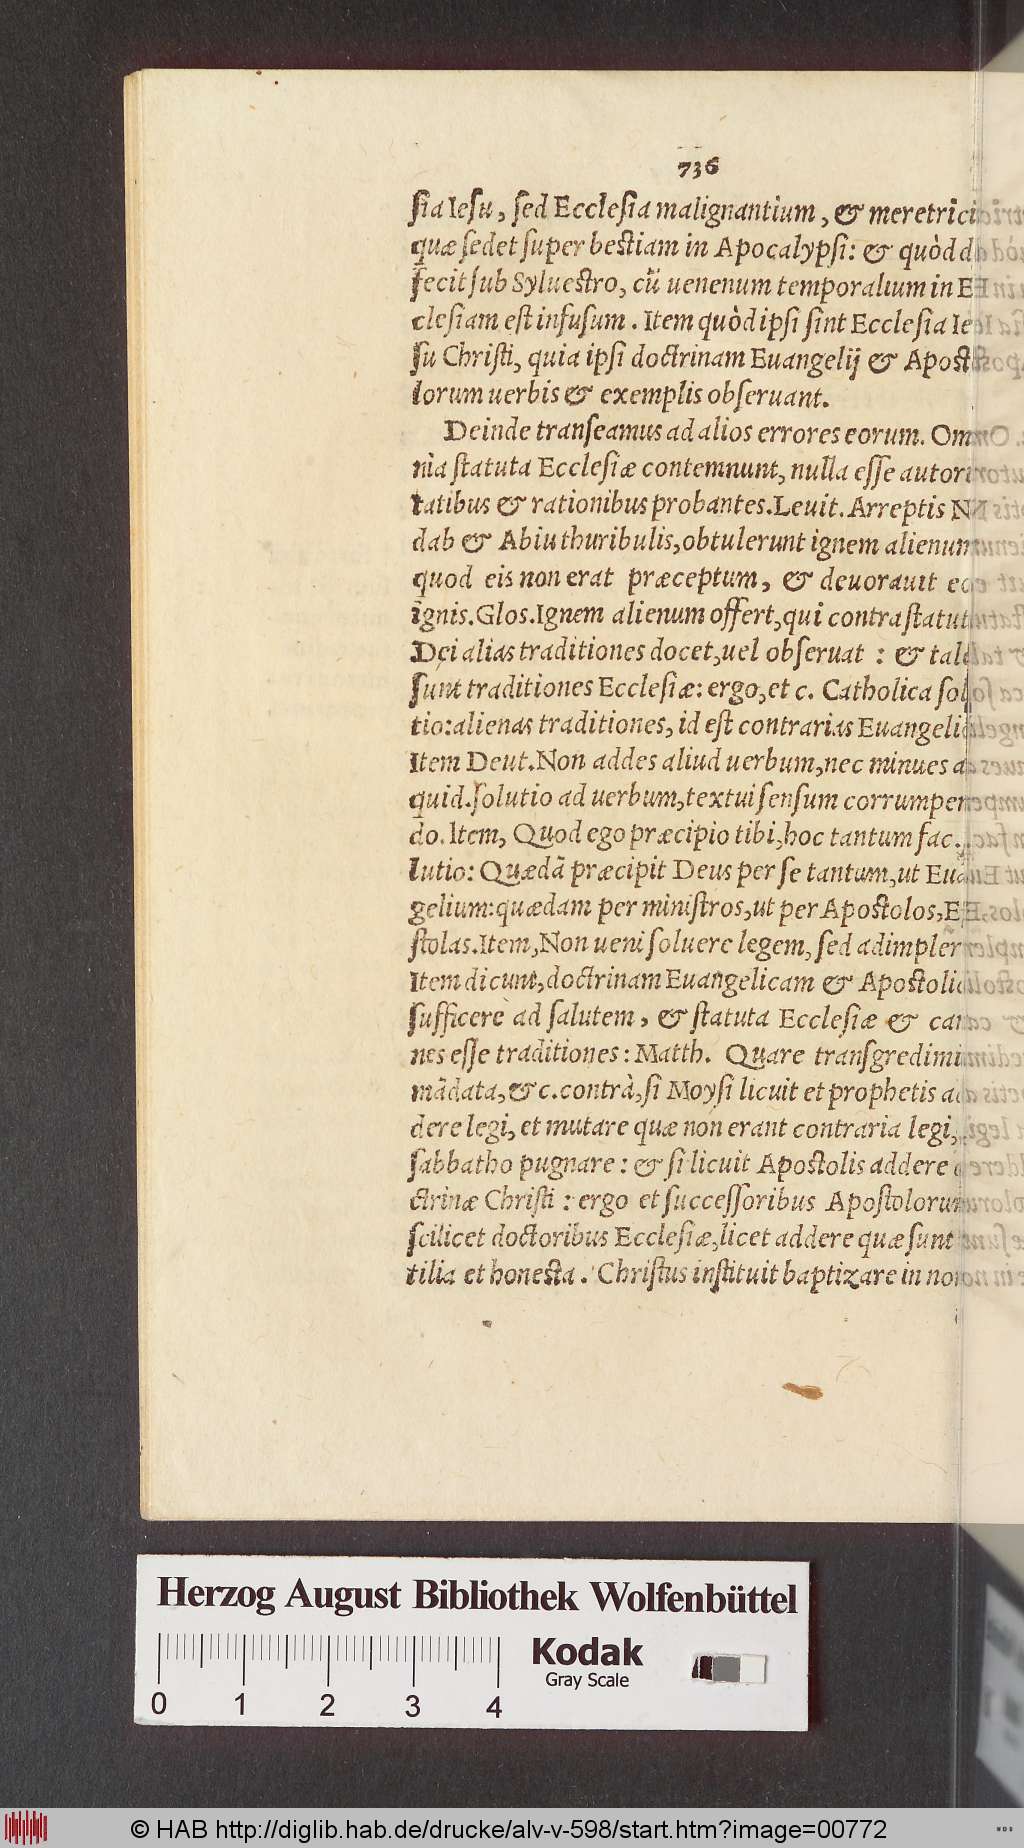 736
ſia Ieſu, ſed Eccleſia malignantium, & meretrici
quæ ſedet ſuper beſtiam in Apocalypſi: & quòd d
fecit ſub Sylueſtro, cũ uenenum temporalium in E
cleſiam eſt infuſum. Item quòd ipſi ſint Eccleſia Ie
ſu Chriſti, quia ipſi doctrinam Euangelij & Apoſt
lorum uerbis & exemplis obſeruant.
Deinde tranſeamus ad alios errores eorum. Om
nia ſtatuta Eccleſiæ contemnunt, nulla eſſe autori
tatibus & rationibus probantes. Leuit. Arreptis N
dab & Abiu thuribulis, obtulerunt ignem alienum
quod eis non erat præceptum, & deuorauit eos
ignis. Gloſ. Ignem alienum offert, qui contra ſtatut
Dei alias traditiones docet, uel obſeruat : & tal
ſunt traditiones Eccleſiæ: ergo, et c. Catholica ſol
tio: alienas traditiones, id eſt contrarias Euangeli
Item Deut. Non addes aliud uerbum, nec minues a
quid. ſolutio ad uerbum, textui ſenſum corrumpen
do. Item, Quod ego præcipio tibi, hoc tantum fac.
lutio: Quædã præcipit Deus per ſe tantum, ut Eua
gelium: quædam per miniſtros, ut per Apoſtolos, E
ſtolas. Item, Non ueni ſoluere legem, ſed adimpler
Item dicunt, doctrinam Euangelicam & Apoſtoli
ſufficere ad ſalutem, & ſtatuta Eccleſiæ & ca
nes eſſe traditiones: Matth. Quare tranſgredimi
mãdata, & c. contrà, ſi Moyſi licuit et prophetis a
dere legi, et mutare quæ non erant contraria legi,
ſabbatho pugnare: & ſi licuit Apoſtolis addere
ctrinæ Chriſti : ergo et ſucceſſoribus Apoſtoloru
ſcilicet doctoribus Eccleſiæ, licet addere quæ ſunt
tilia et honeſta. Chriſtus inſtituit baptizare in no
Herzog August Bibliothek Wolfenbüttel
Kodak
Gray Scale
0 1 2 3 4
© HAB http://diglib.hab.de/drucke/alv-v-598/start.htm?image=00772